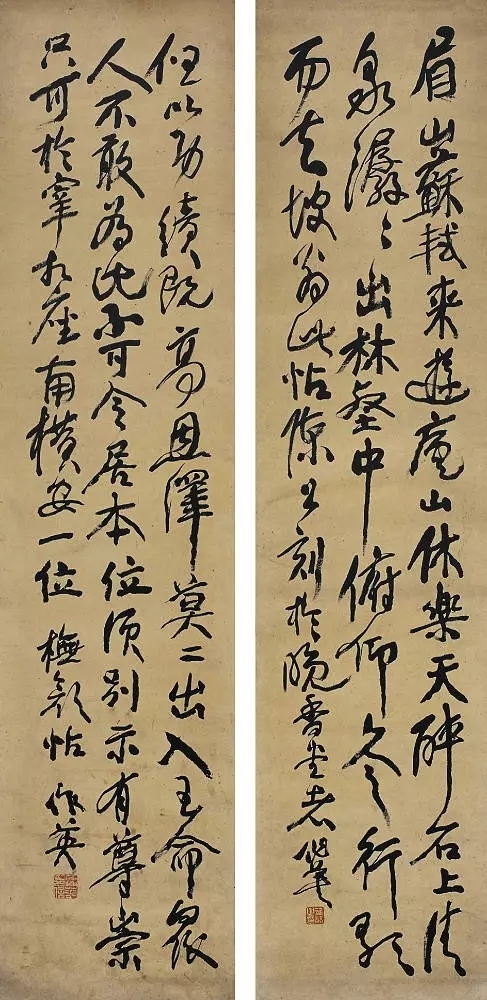 眉山蘇軾来遊廬山休樂天醉石上清
泉潺〻出林壑中俯仰久之行歌
而去坡翁此帖陳公刻於晚香堂老
但以功績既高恩澤莫二出入王命眾
人不敢為比不可令居本位須別示有尊崇
只可於宰相座南橫安一位 橅顏帖 作英